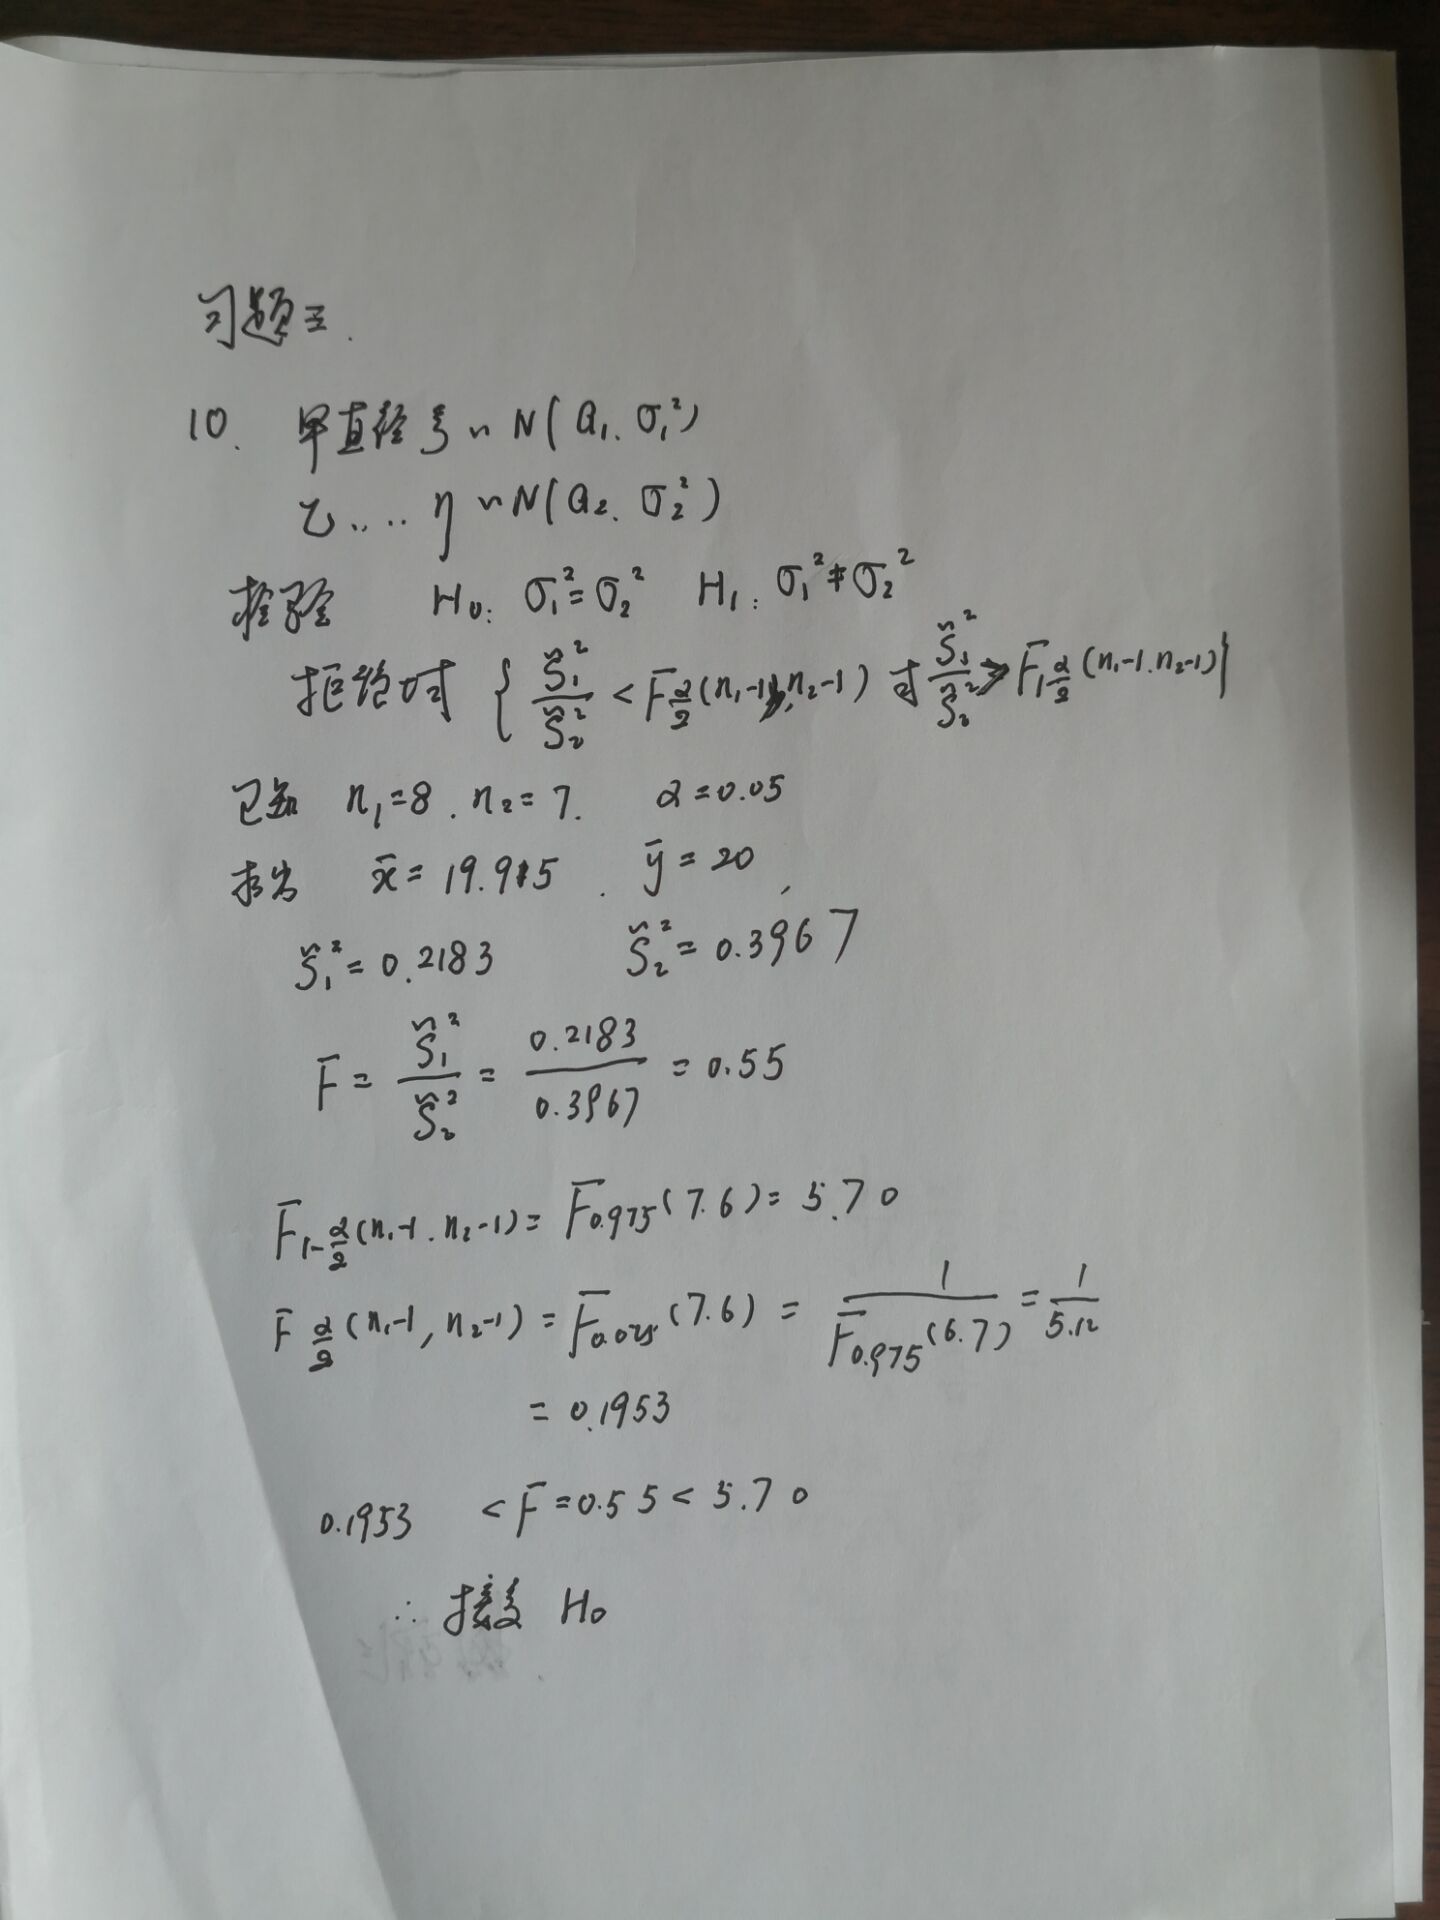 习题三.
10. 甲直径ξ~N(a₁, σ₁²)
乙.... η~N(a₂, σ₂²)
检验 H₀: σ₁²=σ₂² H₁: σ₁²≠σ₂²
拒绝时 { S̃₁²/S̃₂² < F_{α/2}(n₁-1, n₂-1) 或 S̃₁²/S̃₂² > F_{1-α/2}(n₁-1, n₂-1) }
已知 n₁=8, n₂=7. α=0.05
求出 x̄=19.925, ȳ=20,
S̃₁²=0.2183 S̃₂²=0.3967
F = S̃₁²/S̃₂² = 0.2183/0.3967 = 0.55
F_{1-α/2}(n₁-1, n₂-1) = F_{0.975}(7, 6) = 5.70
F_{α/2}(n₁-1, n₂-1) = F_{0.025}(7, 6) = 1/F_{0.975}(6, 7) = 1/5.12
= 0.1953
0.1953 < F=0.55 < 5.70
∴ 接受 H₀